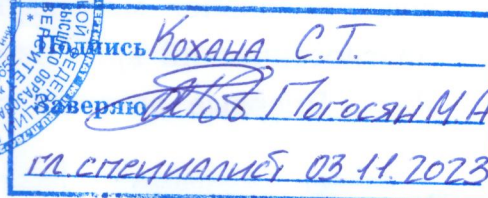 Подпись Кохана С.Т.
Заверяю Погосян М.А
гл. специалист 03.11.2023